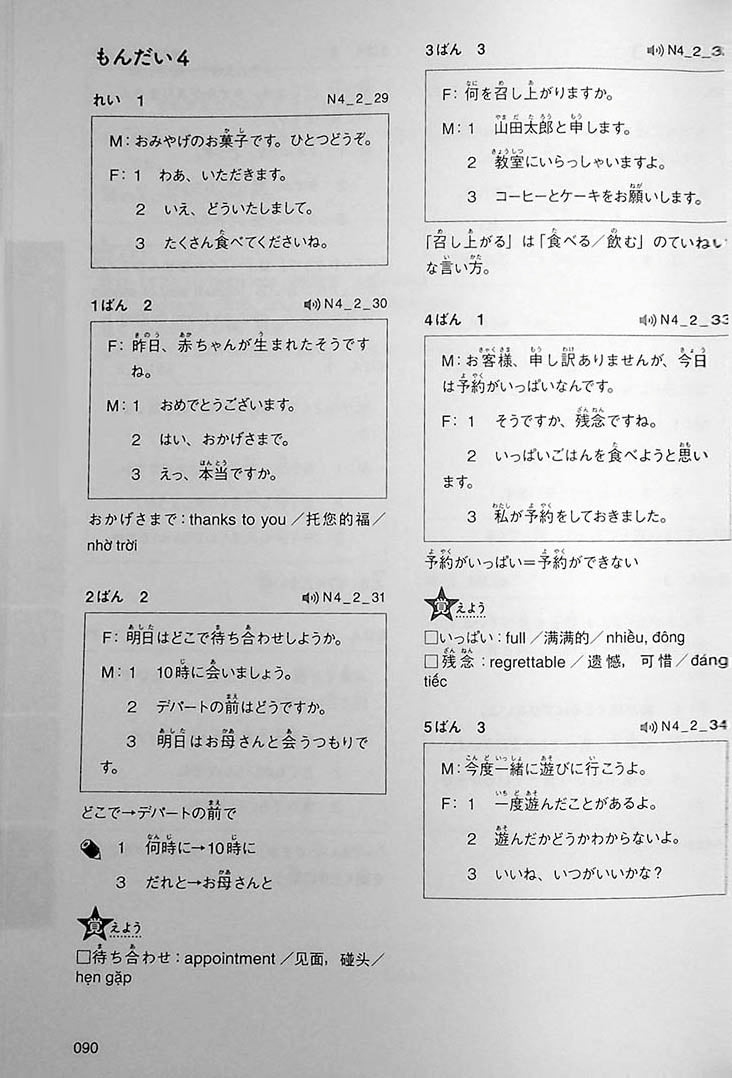 もんだい4
れい 1 N4_2_29
M：おみやげのお菓子です。ひとつどうぞ。
F：1 わあ、いただきます。
2 いえ、どういたしまして。
3 たくさん食べてくださいね。
1ばん 2 N4_2_30
F：昨日、赤ちゃんが生まれたそうです
ね。
M：1 おめでとうございます。
2 はい、おかげさまで。
3 えっ、本当ですか。
おかげさまで：thanks to you／托您的福／
nhờ trời
2ばん 2 N4_2_31
F：明日はどこで待ち合わせしようか。
M：1 10時に会いましょう。
2 デパートの前はどうですか。
3 明日はお母さんと会うつもりで
す。
どこで→デパートの前で
1 何時に→10時に
3 だれと→お母さんと
覚えよう
□待ち合わせ：appointment／见面，碰头／
hẹn gặp
090
3ばん 3 N4_2_3
F：何を召し上がりますか。
M：1 山田太郎と申します。
2 教室にいらっしゃいますよ。
3 コーヒーとケーキをお願いします。
「召し上がる」は「食べる／飲む」のていねい
な言い方。
4ばん 1 N4_2_33
M：お客様、申し訳ありませんが、今日
は予約がいっぱいなんです。
F：1 そうですか、残念ですね。
2 いっぱいごはんを食べようと思い
ます。
3 私が予約をしておきました。
予約がいっぱい＝予約ができない
覚えよう
□いっぱい：full／满满的／nhiều, đông
□残念：regrettable／遗憾，可惜／đáng
tiếc
5ばん 3 N4_2_34
M：今度一緒に遊びに行こうよ。
F：1 一度遊んだことがあるよ。
2 遊んだかどうかわからないよ。
3 いいね、いつがいいかな？